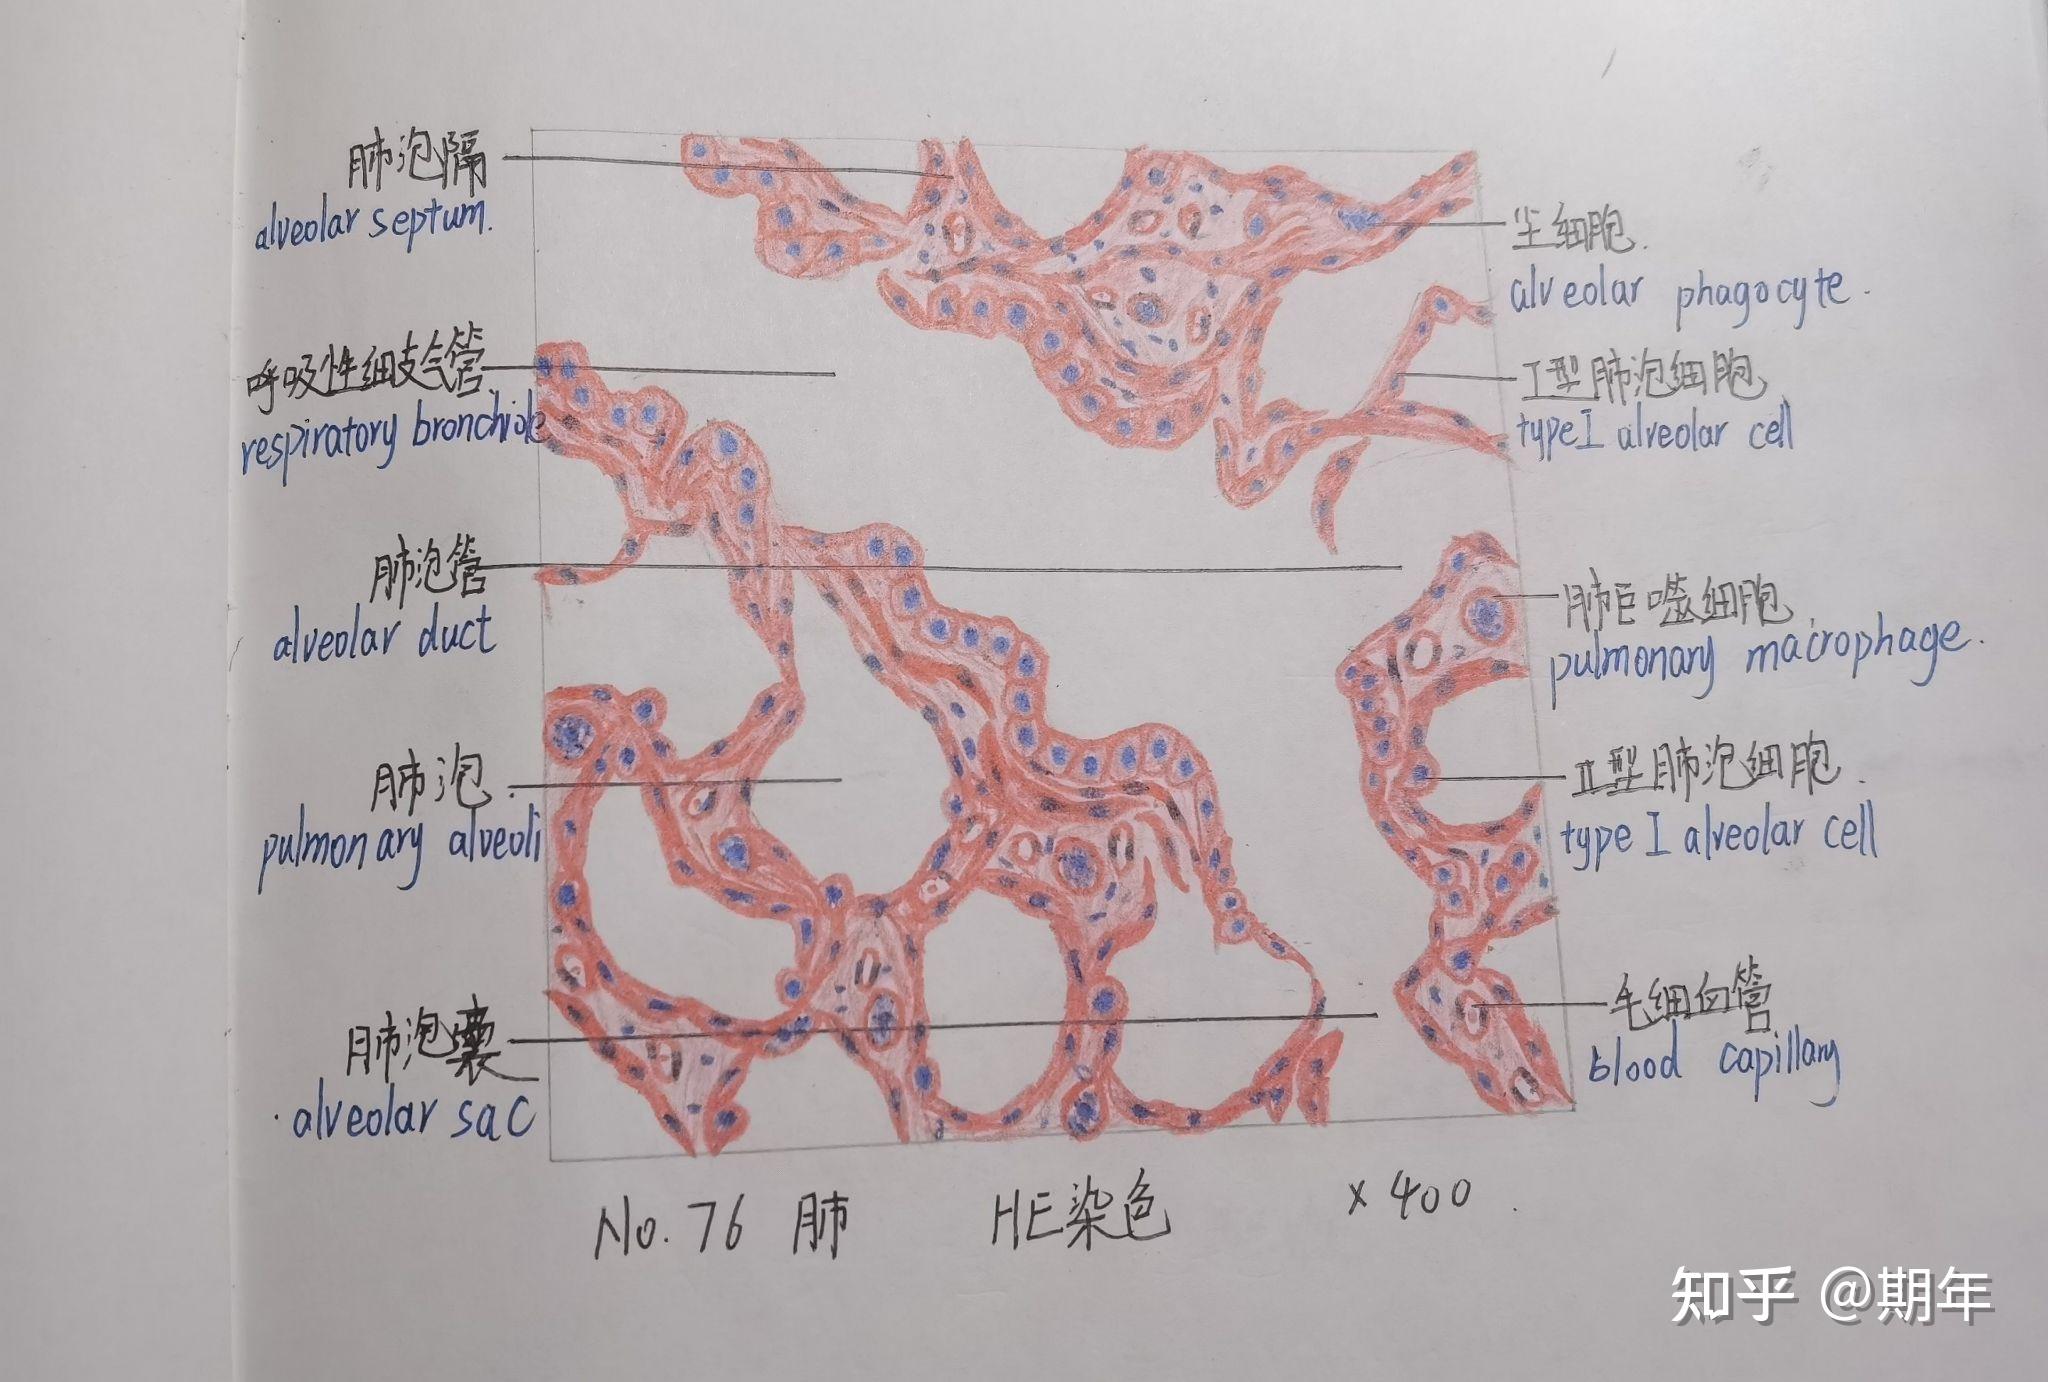 肺泡隔
alveolar septum.
呼吸性细支气管
respiratory bronchiole
肺泡管
alveolar duct
肺泡
pulmonary alveoli
肺泡囊
alveolar sac
尘细胞.
alveolar phagocyte.
I型肺泡细胞
type I alveolar cell
肺巨噬细胞
pulmonary macrophage.
II型肺泡细胞.
type I alveolar cell
毛细血管
blood capillary
No.76 肺 HE染色 ×400
知乎 @期年